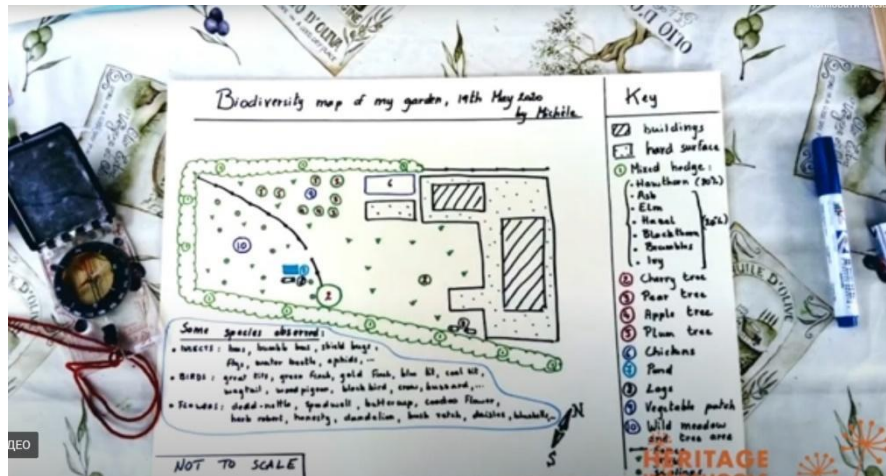 Biodiversity map of my garden, 19th May 2020
by Michèle
Key
buildings
hard surface
1 Mixed hedge:
- Hawthorn
- Ash
- Elm
- Hazel
- Blackthorn
- Brambles
- Ivy
2 Cherry tree
Pear tree
4 Apple tree
5 Plum tree
6 Chickens
7 Pond
8 Logs
9 Vegetable patch
10 Wild meadow
and tree area
6
10
2
Some species observed:
• INSECTS: bees, bumble bees, shield bugs,
flys, water beetle, aphids, ...
• BIRDS: great tits, green finch, gold finch, blue tit, coal tit,
wagtail, woodpigeon, black bird, crow, buzzard, ...
• FLOWERS: dead-nettle, speedwell, buttercup, cuckoo flower,
herb robert, honesty, dandelion, bush vetch, daisies, bluebells, ...
N
S
NOT TO SCALE
HERITAGE
ДЕО